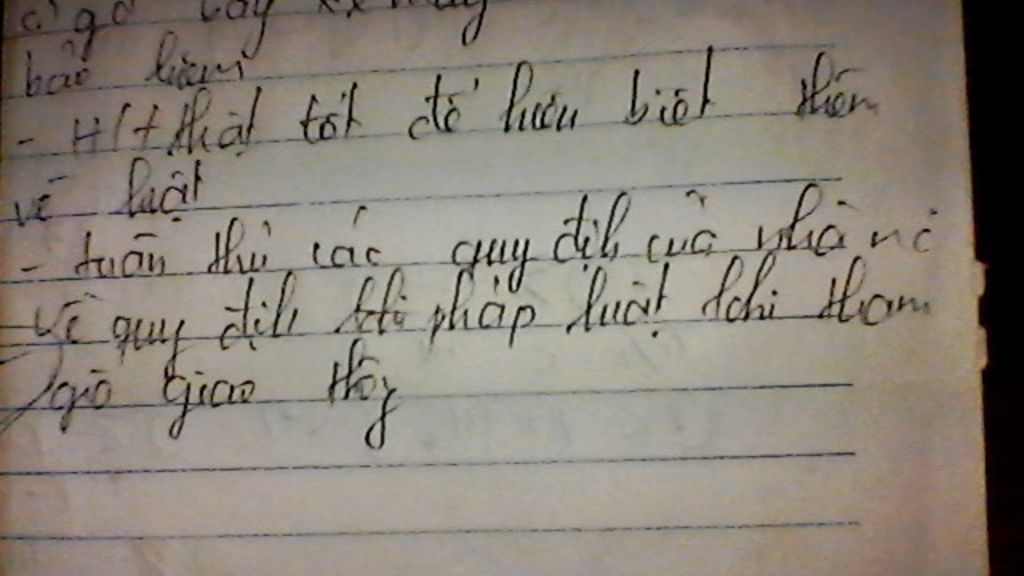 bảo hiểm
- H/t thật tốt để hiểu biết thêm
về luật
- tuân thủ các quy địh của nhà nc
về quy địh khi pháp luật khi tham
gia giao thôg